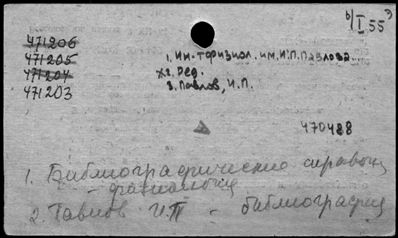 b/I 55
471206
471205
471204
471203
1. Ин-т физиол. им. И.П. Павлова
x2. Ред.
3. Павлов, И.П.
470488
1. Библиографические справочн
2. Павлов И.П - библиография